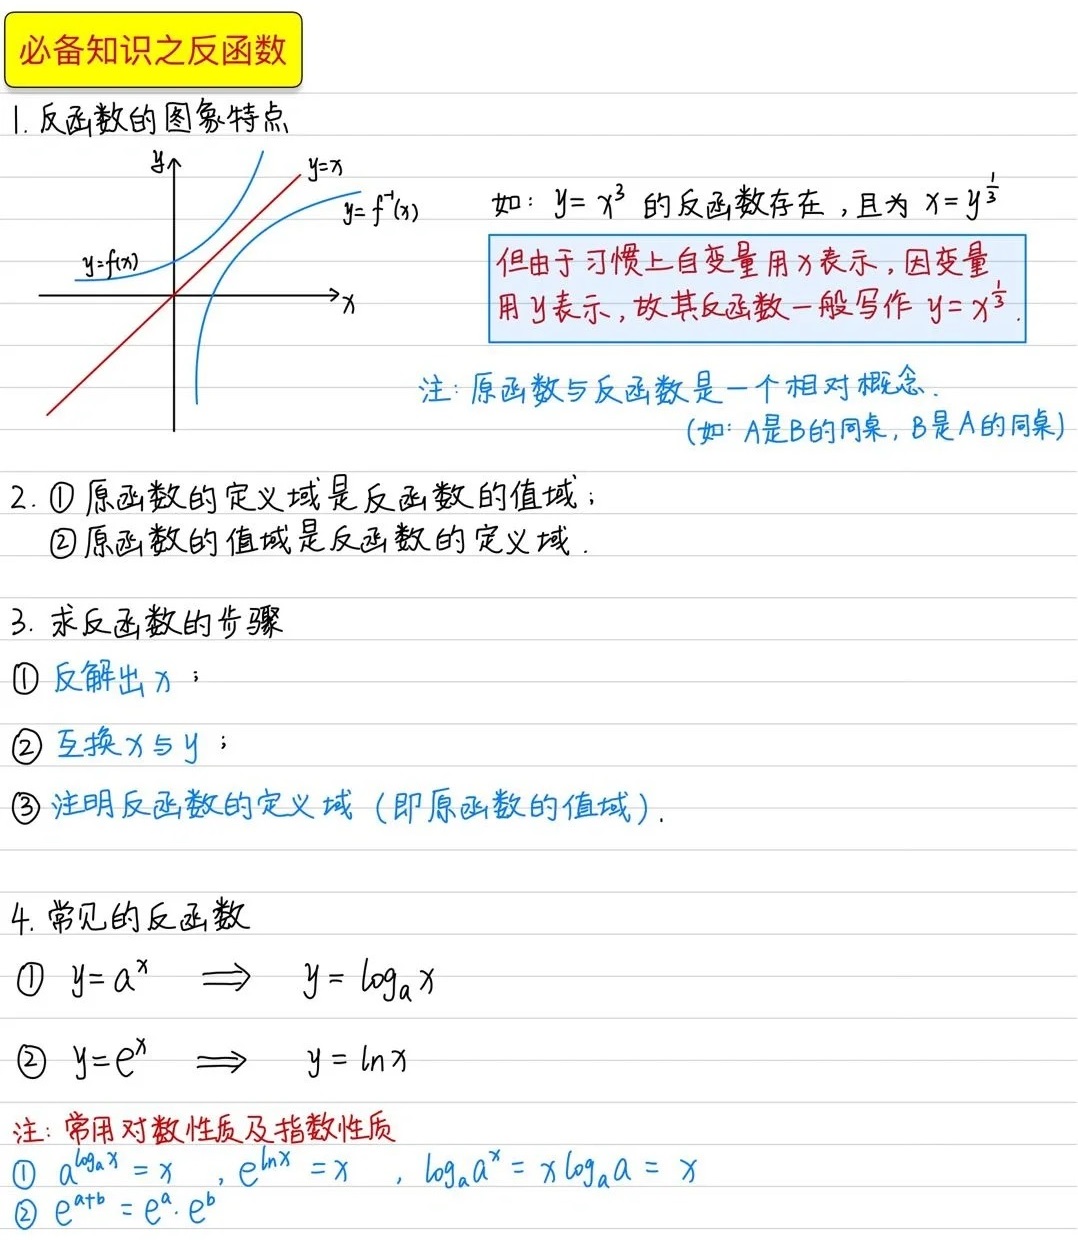 必备知识之反函数
1. 反函数的图象特点
y
y=x
y=f⁻¹(x)
y=f(x)
x
如: y=x³ 的反函数存在,且为 x=y^{1/3}
但由于习惯上自变量用x表示,因变量
用y表示,故其反函数一般写作 y=x^{1/3}.
注: 原函数与反函数是一个相对概念.
(如: A是B的同桌, B是A的同桌)
2. ① 原函数的定义域是反函数的值域;
② 原函数的值域是反函数的定义域.
3. 求反函数的步骤
① 反解出 x ;
② 互换 x 与 y ;
③ 注明反函数的定义域 (即原函数的值域).
4. 常见的反函数
① y=a^x ⟹ y=log_a x
② y=e^x ⟹ y=ln x
注: 常用对数性质及指数性质
① a^{log_a x} = x , e^{ln x} = x , log_a a^x = x log_a a = x
② e^{a+b} = e^a · e^b